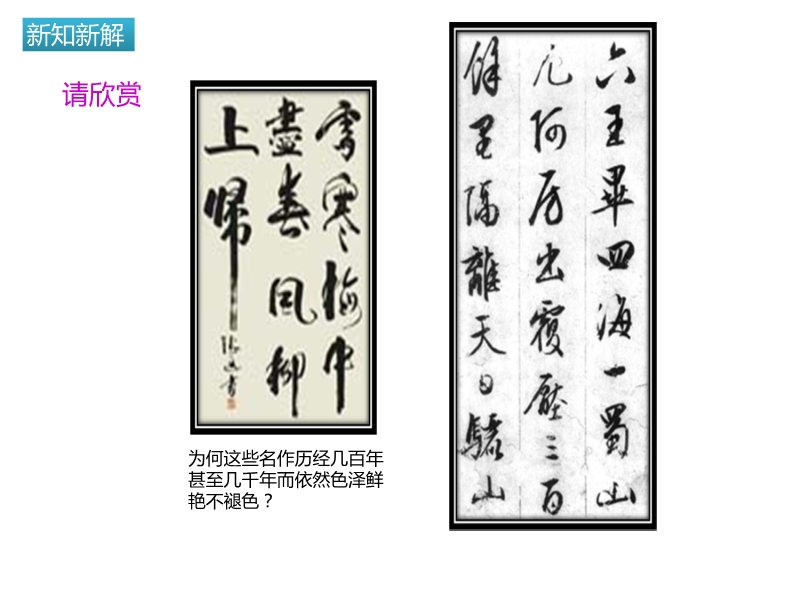 新知新解
请欣赏
雪寒梅中
盡春風柳
上歸
为何这些名作历经几百年
甚至几千年而依然色泽鲜
艳不褪色？
六王畢四海一蜀山
兀阿房出覆壓三百
餘里隔離天日驪山